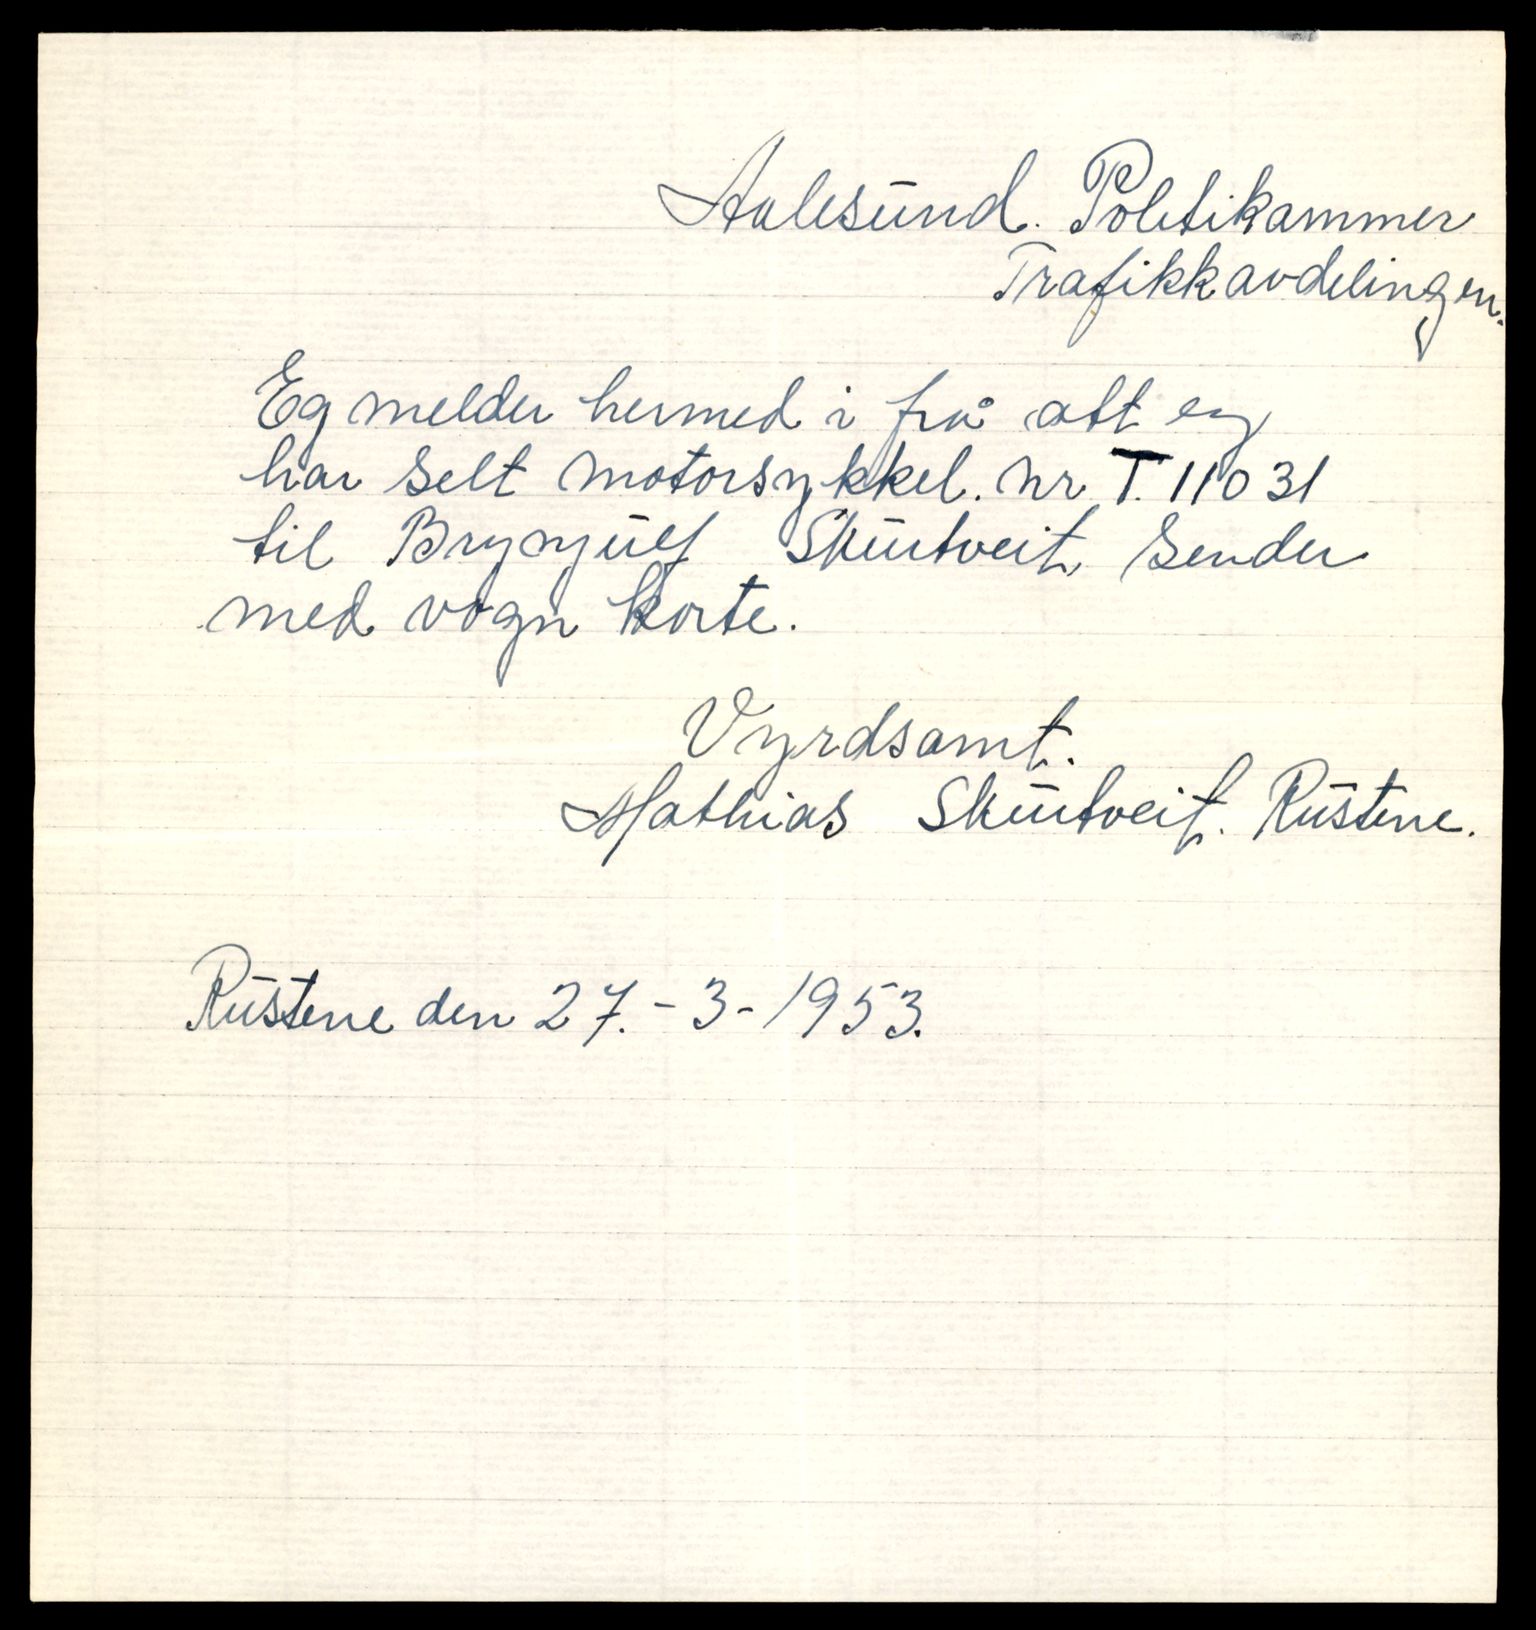 Aalesund. Politikammer
Trafikkavdelingen.
Eg melder hermed i frå att eg
har selt motorsykkel. nr T. 11031
til Brynjulf Skurtveit, sender
med vogn korte.
Vyrdsamt.
Mathias Skurtveit. Rustene.
Rustene den 27.-3-1953.